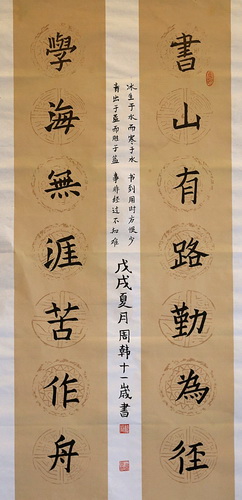 書山有路勤為径
冰生于水而寒于水 书到用时方恨少
青出于蓝而胜于蓝 事非经过不知难
戊戌夏月周韩十一歲書
學海無涯苦作舟